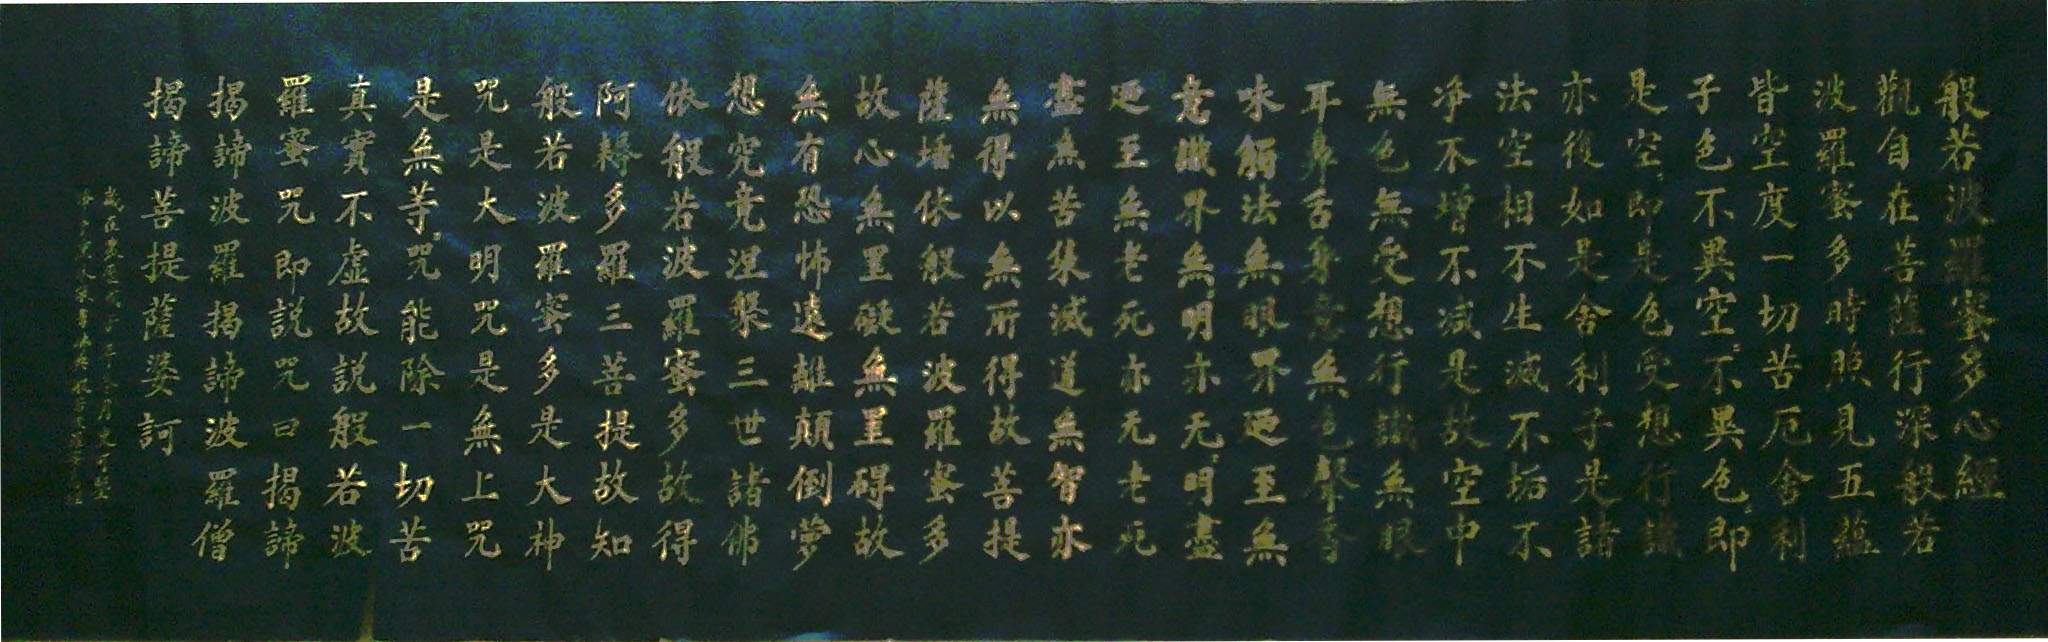 般若波羅蜜多心經
觀自在菩薩行深般若
波羅蜜多時照見五蘊
皆空度一切苦厄舍利
子色不異空〻不異色〻即
是空〻即是色受想行識
亦復如是舍利子是諸
法空相不生滅不垢不
净不增不减是故空中
無色無受想行識無眼
耳鼻舌身意無色聲香
味觸法無眼界廼至無
意識界無〻明亦无〻明盡
廼至無老死亦无老死
盡無苦集滅道無智亦
無得以無所得故菩提
薩埵依般若波羅蜜多
故心無罣礙無罣碍故
無有恐怖遠離顛倒夢
想究竟涅槃三世諸佛
依般若波羅蜜多故得
阿耨多羅三菩提故知
般若波羅蜜多是大神
咒是大明咒是無上咒
是無等〻咒能除一切苦
真實不虛故説般若波
羅蜜咒即説咒曰揭諦
揭諦波羅揭諦波羅僧
揭諦菩提薩婆訶
歲在